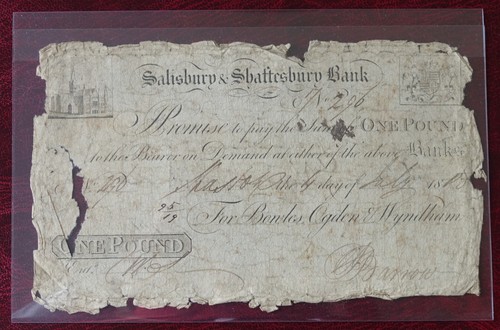 Salisbury & Shaftesbury Bank
No. 206
I Promise to pay the ONE POUND
to the Bearer on Demand at either of the above Banks
day of July 18
For Bowles, Ogden & Wyndham
ONE POUND
Entd.